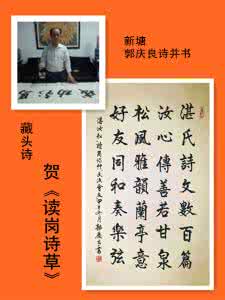 新塘
郭庆良诗并书
藏头诗
贺《读岗诗草》
湛氏詩文數百篇
汝心傳善若甘泉
松風雅韻蘭亭意
好友同和奏樂弦